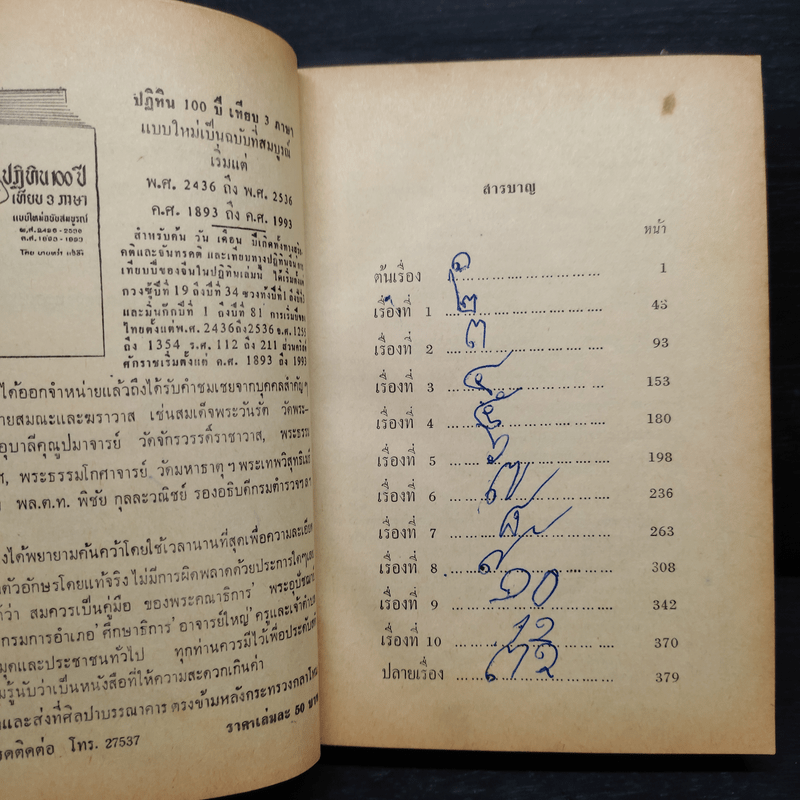 ปฏิทิน 100 ปี เทียบ 3 ภาษา
แบบใหม่เป็นฉบับที่สมบูรณ์
เริ่มแต่
พ.ศ. 2436 ถึง พ.ศ. 2536
ค.ศ. 1893 ถึง ค.ศ. 1993
ปฏิทิน 100 ปี
เทียบ 3 ภาษา
แบบใหม่ฉบับสมบูรณ์
พ.ศ. 2436 - 2536
ค.ศ. 1893 - 1993
สำหรับค้น วัน เดือน ปีเกิดทั้งทางสุริย
คติและจันทรคติ และเทียบทางปฏิทินจีน
เทียบปีของจีนในปฏิทินเล่มนี้ ได้เริ่มตั้งแต่
กวงซู้ปีที่ 19 ถึงปีที่ 34 ซวงท้งปีที่ 1 ถึงปีที่
และมิ่นก๊กปีที่ 1 ถึงปีที่ 81
ไทยตั้งแต่พ.ศ. 2436ถึง2536 จ.ศ. 1255
ถึง 1354 ร.ศ. 112 ถึง 211
ศักราชเริ่มตั้งแต่ ค.ศ. 1893 ถึง 1993
ได้ออกจำหน่ายแล้วถึงได้รับคำชมเชยจากบุคคลสำคัญๆ
ายสมณะและฆราวาส เช่นสมเด็จพระวันรัต วัดพระ-
อุบาลีคุณูปมาจารย์ วัดจักรวรรดิ์ราชาวาส, พระธรร
ฯ, พระธรรมโกศาจารย์ วัดมหาธาตุ ฯ พระเทพวิสุทธิเมธี
พล.ต.ท. พิชัย กุลละวณิชย์ รองอธิบดีกรมตำรวจฯลฯ
งได้พยายามค้นคว้าโดยใช้เวลานานที่สุดเพื่อความละเอียด
ตัวอักษรโดยแท้จริง ไม่มีการผิดพลาดด้วยประการใดๆ
ได้ว่า สมควรเป็นคู่มือ ของพระคณาธิการ พระอุปัชฌาย์
กรมการอำเภอ ศึกษาธิการ อาจารย์ใหญ่ ครูและเจ้า
มุดและประชาชนทั่วไป ทุกท่านควรมีไว้เพื่อประดับ
มรู้นับว่าเป็นหนังสือที่ให้ความสะดวกเกินค่า
และส่งที่ศิลปาบรรณาคาร ตรงข้ามหลังกระทรวงกลาโหม
ราคาเล่มละ 50 บาท
ดติดต่อ โทร. 27537
สารบาญ
หน้า
ต้นเรื่อง ๑ 1
เรื่องที่ 1 ๒ 43
เรื่องที่ 2 ๓ 93
เรื่องที่ 3 ๔ 153
เรื่องที่ 4 ๕ 180
เรื่องที่ 5 ๖ 198
เรื่องที่ 6 ๗ 236
เรื่องที่ 7 ๘ 263
เรื่องที่ 8 ๙ 308
เรื่องที่ 9 ๑0 342
เรื่องที่ 10 370
ปลายเรื่อง 379